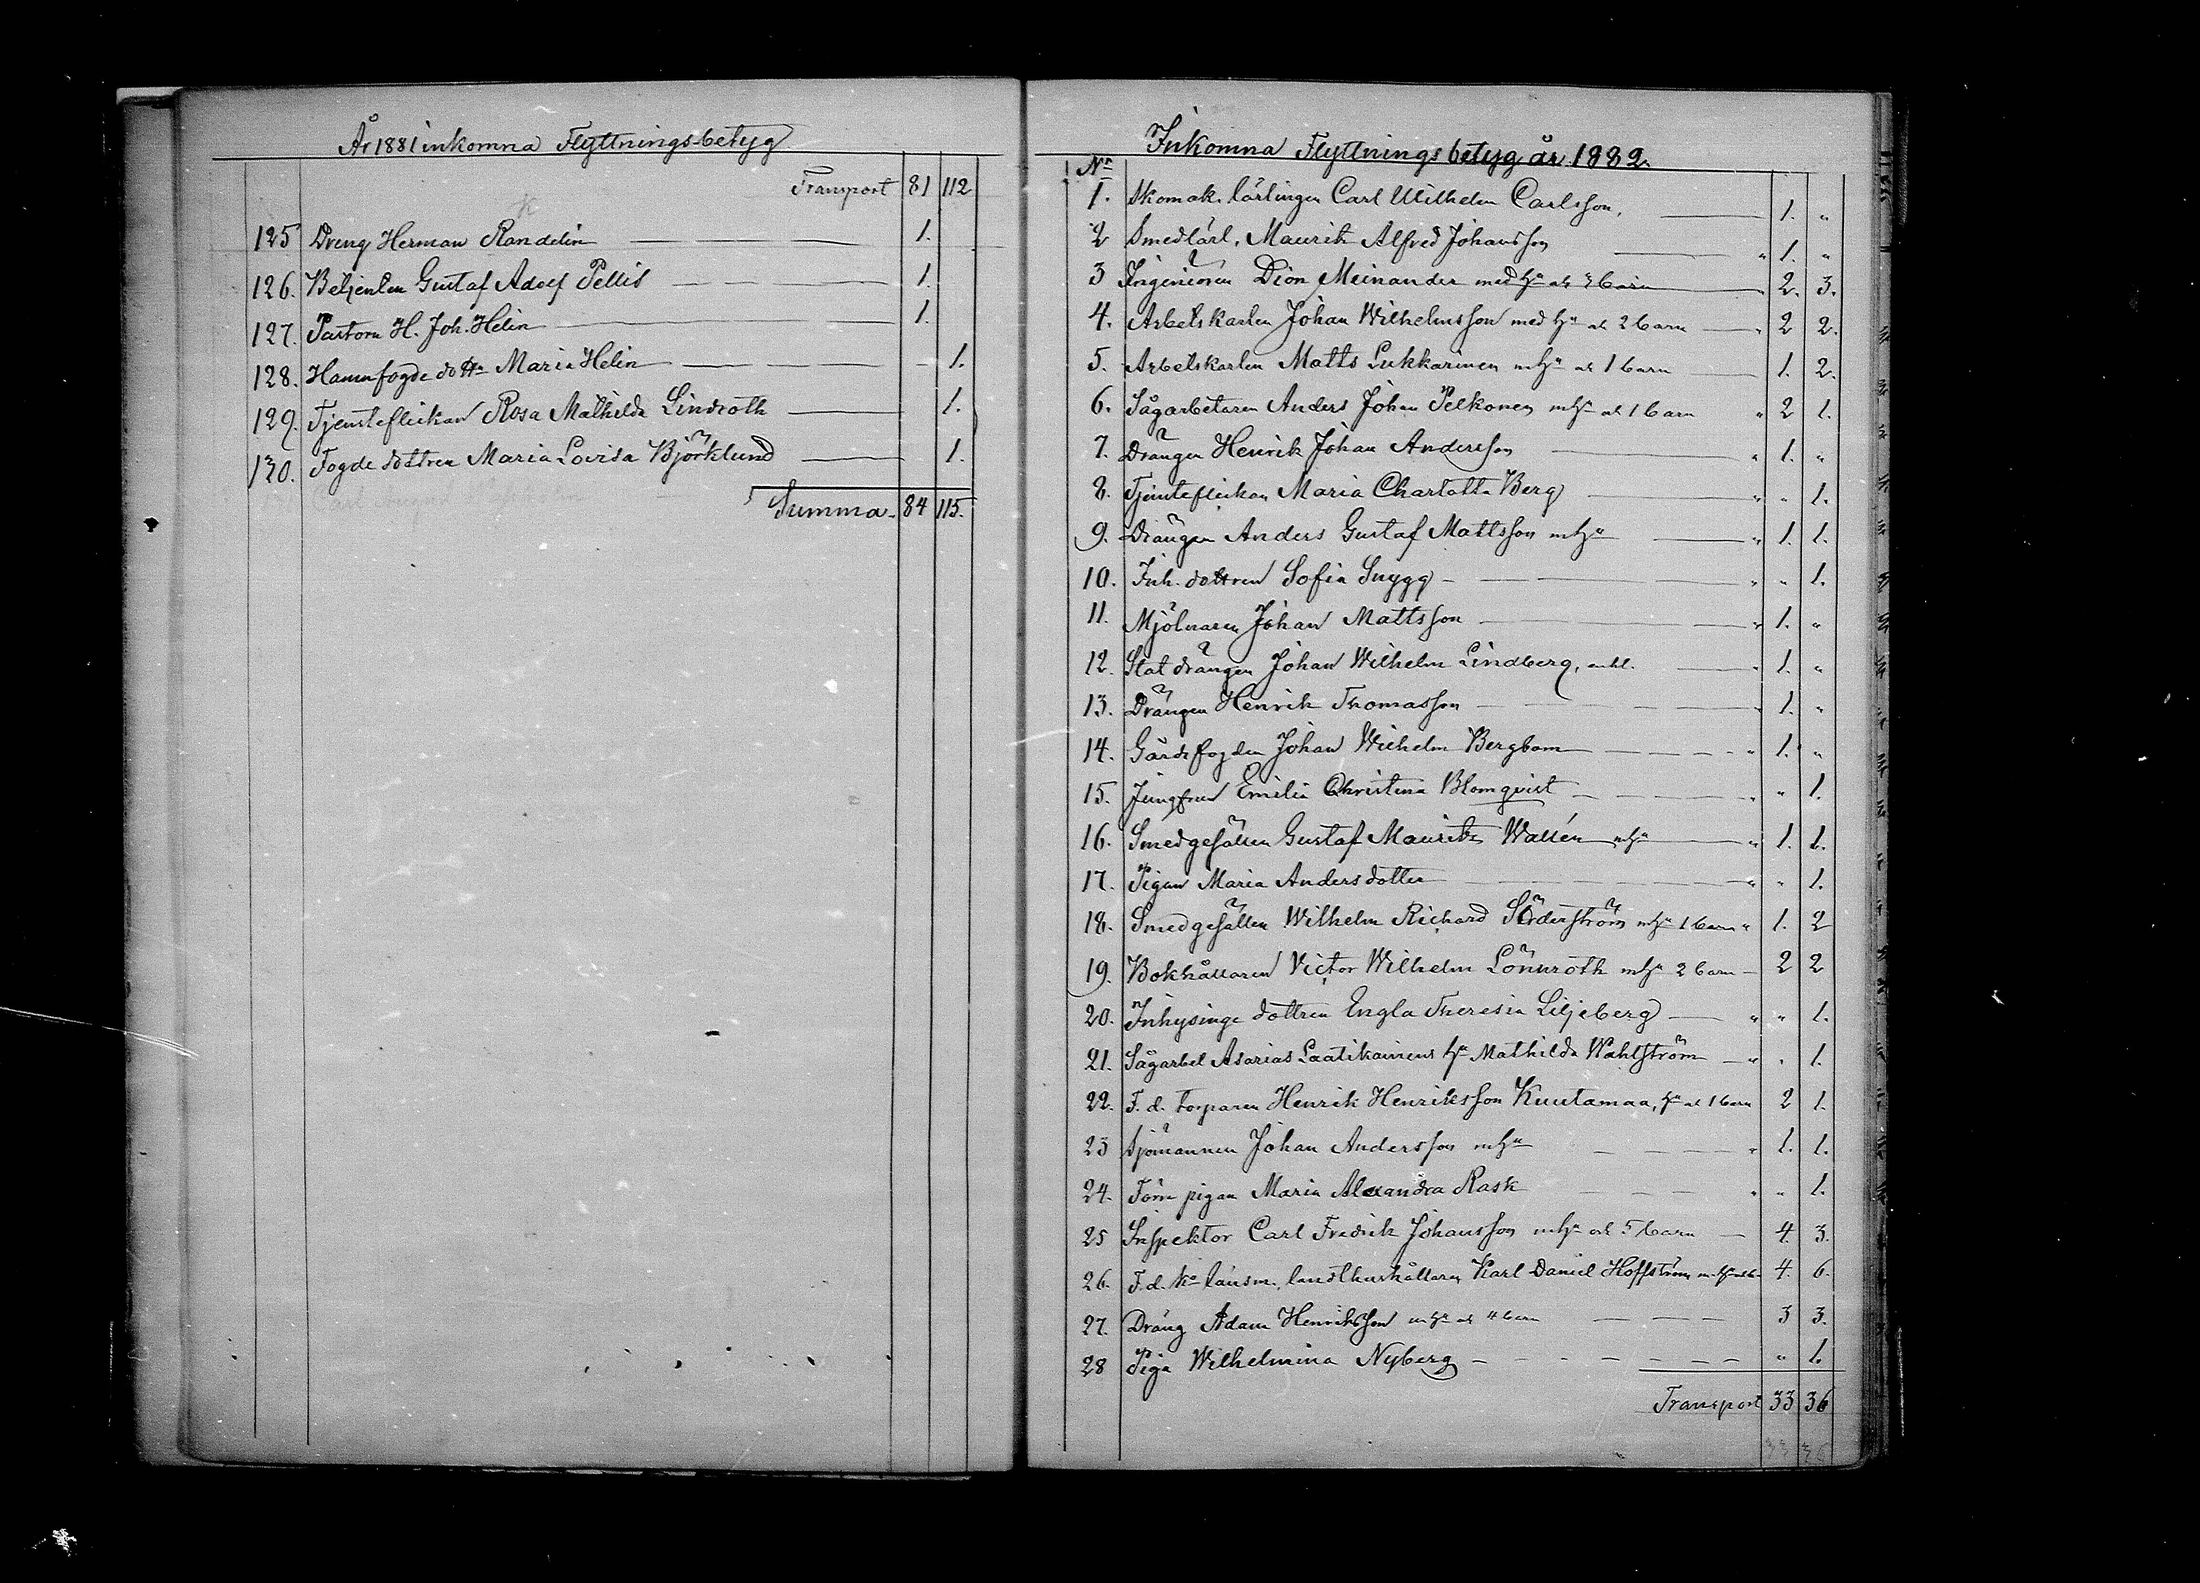 År 1881 inkomna Flyttningsbetyg
Transport 81 112
125 Dreng Herman Randelin 1.
126. Betjenten Gustaf Adolf Pellis 1.
127. Pastorn H. Joh. Helin 1.
128. Hamnfogde dottr Maria Helin 1.
129. Tjensteflickan Rosa Mathilda Lindroth 1.
130. Fogde dottren Maria Lovisa Björklund 1.
Summa. 84 115.
Inkomna Flyttningsbetyg år 1882.
Nr
1. Skomak. lärlingen Carl Wilhelm Carlsson, 1. "
2 Smedlärl. Maurik Alfred Johansson " 1. "
3 Ingeniören Dion Meinander med hu ok 3 barn 2. 3.
4. Arbetskarlen Johan Wilhelmsson med hu ok 2 barn " 2 2.
5. Arbetskarlen Matts Lukkarinen mhu ok 1 barn 1. 2.
6. Sågarbetaren Anders Johan Pelkonen mhu ok 1 barn " 2 1.
7. Drängen Henrik Johan Andersson " 1. "
8. Tjensteflickan Maria Charlotta Berg " " 1.
9. Drängen Anders Gustaf Mattsson mhu " 1. 1.
10. Inh. dottren Sofia Snygg " " 1.
11. Mjölnaren Johan Mattsson " 1. "
12. Statdrängen Johan Wilhelm Lindberg, enkl. " 1. "
13. Drängen Henrik Thomasson " 1. "
14. Gårdsfogden Johan Wilhelm Bergbom " 1. "
15. Jungfrun Emilia Christina Blomqvist " " 1.
16. Smedgesällen Gustaf Mauritz Wallén mhu " 1. 1.
17. Pigan Maria Andersdotter " " 1.
18. Smedgesällen Wilhelm Richard Söderström mhu 1 barn " 1. 2
19. Bokhållaren Victor Wilhelm Lönnroth mhu 2 barn 2 2
20. Inhysinge dottren Engla Theresia Liljeberg " " 1.
21. Sågarbet Asarias Laatikainens hu Mathilda Wahlström " " 1.
22. F. d. torparen Henrik Henriksson Kuutamaa, hu ok 1 barn 2 1.
23 Sjömannen Johan Andersson mhu " 1. 1.
24. Torn pigan Maria Alexandra Rask " " 1.
25 Inspektor Carl Fredrik Johansson mhu ok 5 barn 4. 3.
26. F.d. Ko länsm. landthushållaren Karl Daniel Hoffström 4. 6.
27. Dräng Adam Henriksson mhu ok 4 barn 3 3.
28 Piga Wilhelmina Nyberg " 1.
Transport 33 36
33 36